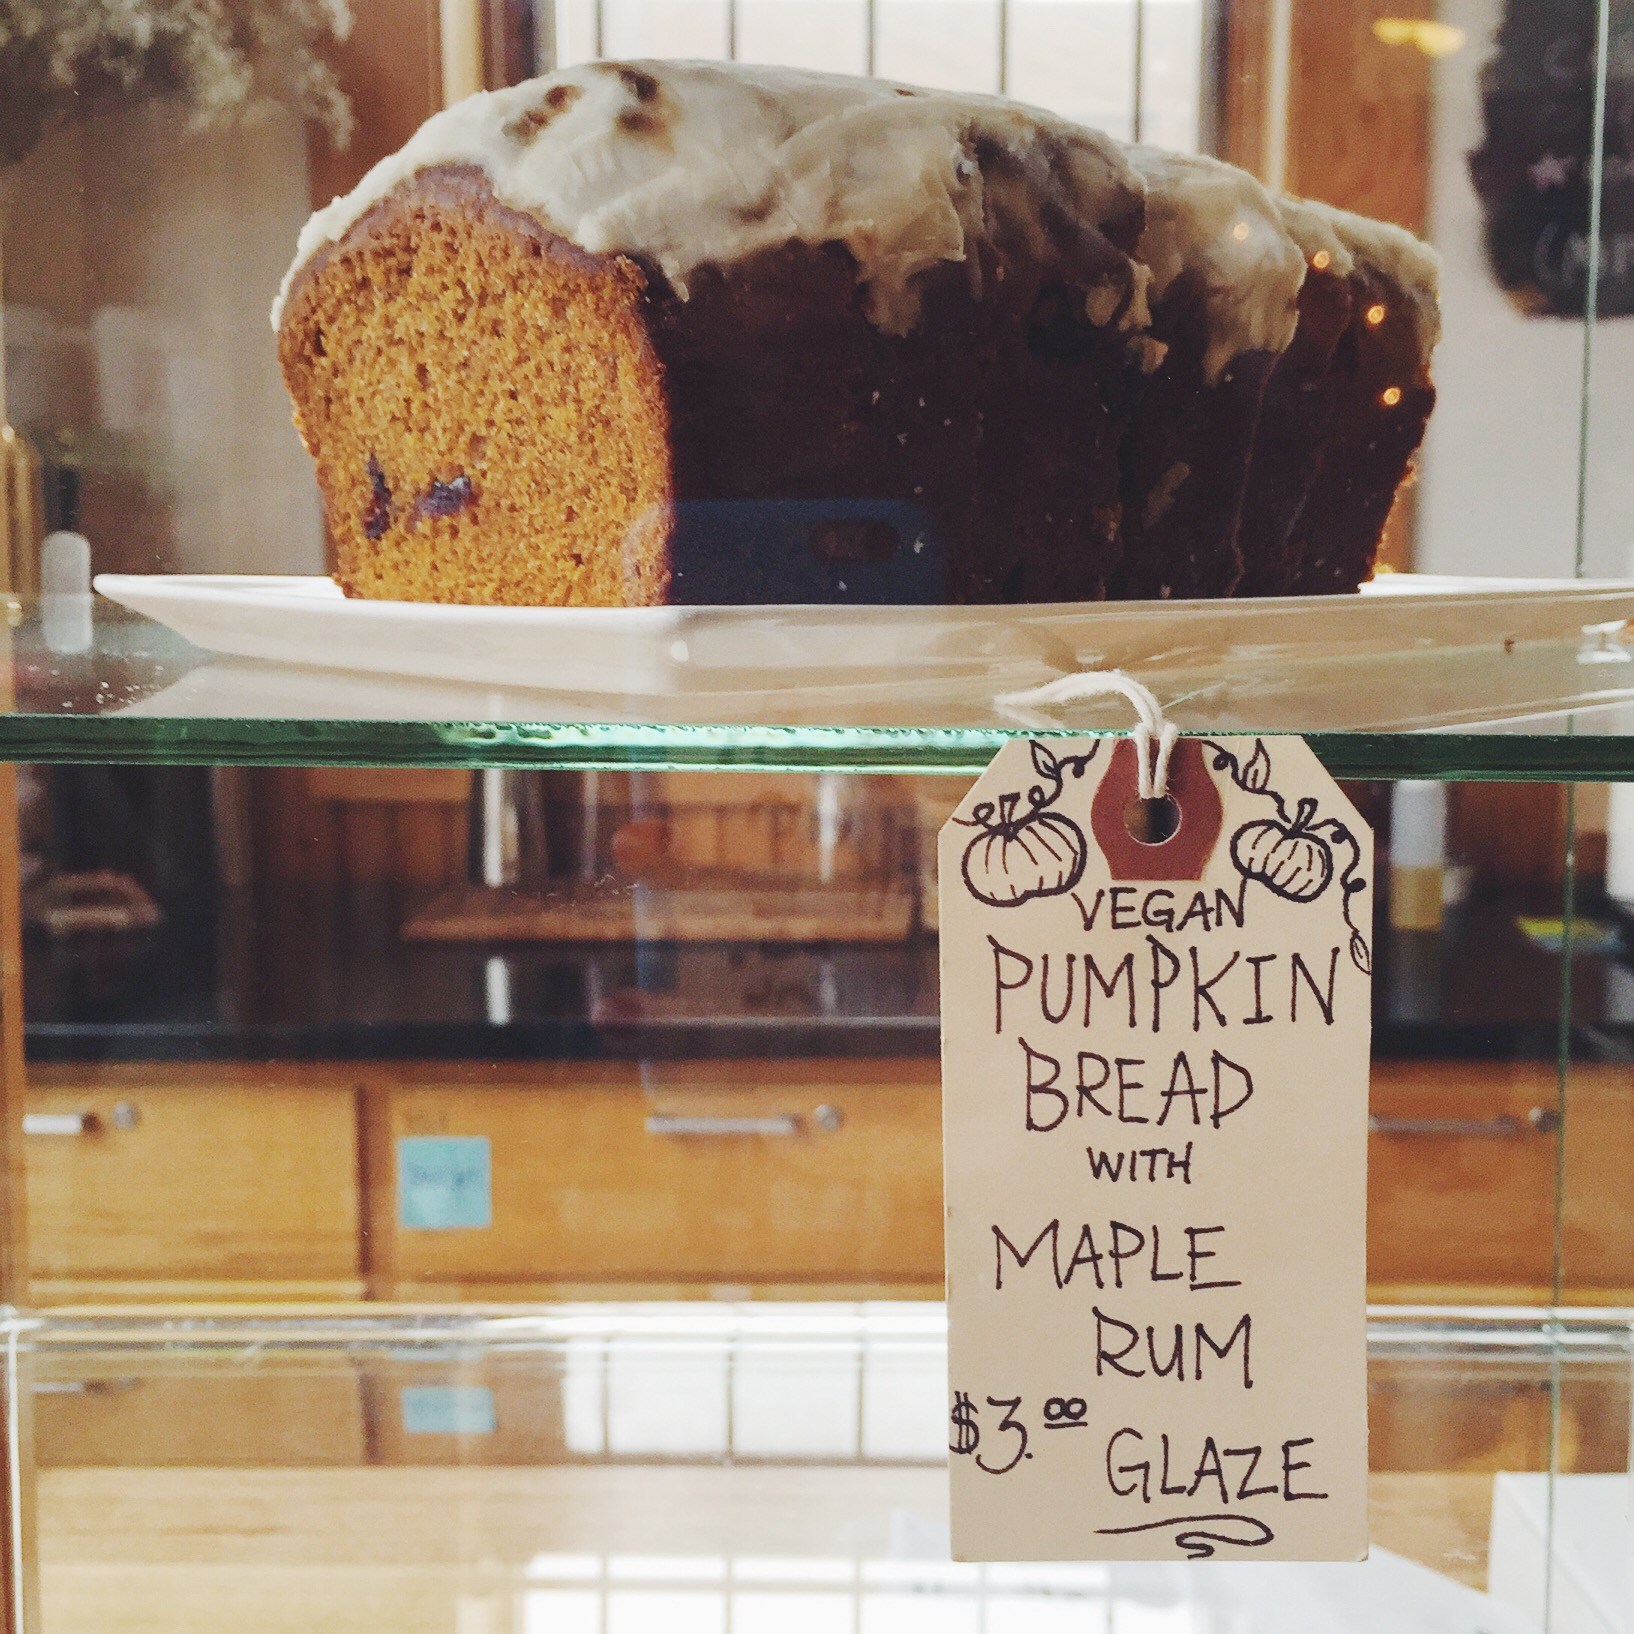 VEGAN
PUMPKIN
BREAD
WITH
MAPLE
RUM
$3.00
GLAZE